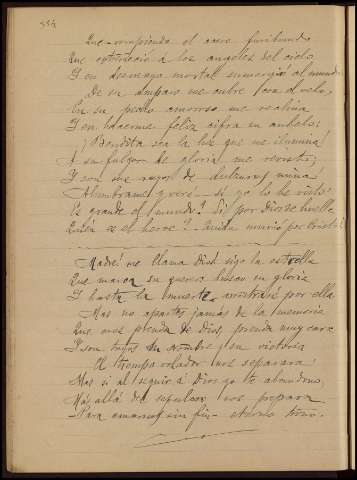 Que rompiendo el caos furibundo
Que estremeció a los angeles del cielo
Y en desmayo mortal sumergió al mundo
De su amparo me cubre con el velo,
En su pecho amoroso me reclina
Y en hacerme feliz cifra su anhelo:
¡Bendita sea la luz que me ilumina!
A su fulgor de gloria me revistió;
Y son sus rayos de dulzura mina
Alumbrame y veré si yo lo he visto!
Es grande el mundo? Sí por Dios se huella
Quién es el heroe?
Madre! me llama Dios sigo la estrella
Que marca su querer busco su gloria
Y hasta la muerte, por ella
Mas no apartes jamás de la memoria
Que eres prenda de Dios, prenda muy cara
Y son tuyos su nombre y su victoria
El tiempo volador nos separara
Mas si al seguir á Dios yo te abandono,
Más allá del sepulcro nos prepara
Para amarnos sin fin eterno trono.